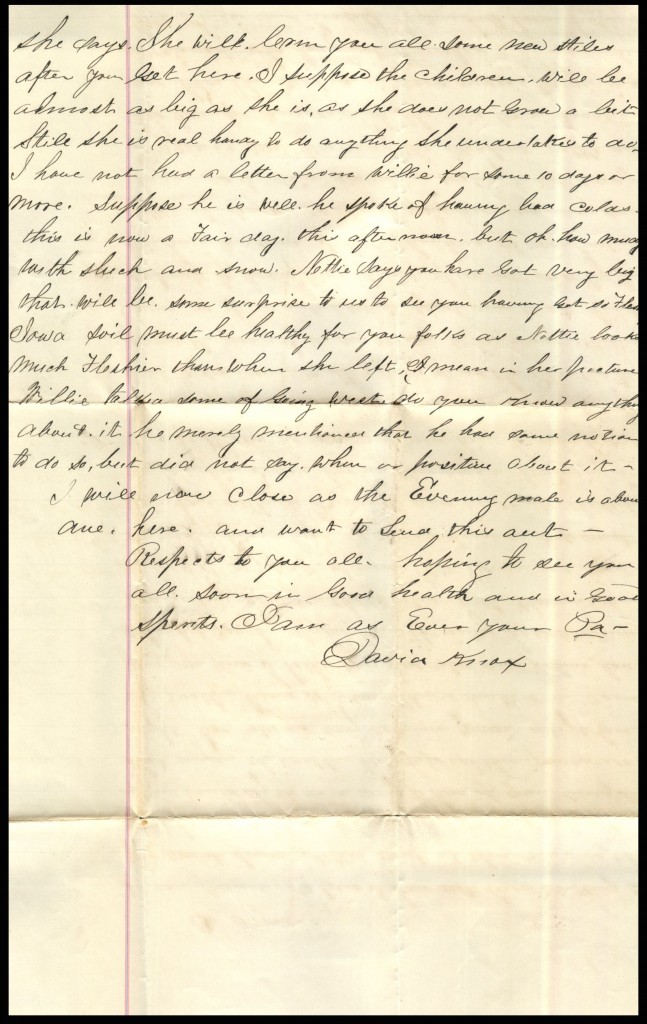 she says. She will learn you all some new stiles
after you Get here. I suppose the Children. will be
almost as big as she is, as she does not Grow a bit
Still she is real handy to do anything she undertakes to do,
I have not had a letter from Willie for some 10 days or
more. Suppose he is well. he spoke of having bad Colds.
this is now a Fair day. this afternoon. but oh. how mudy
with slush and snow. Nettie says you have Got very big
that. will be. some surprise to us to see you having Got so Flesh
Iowa soil must be healthy for you folks as Nettie looks
much Fleshier than when she left, I mean in her picture
Willie talks some of Going west do you Know anything
about. it he merely mentioned that he had some notion
to do so, but did not say. when or positive about it –
I will now Close as the Evening male is about
due. here. and want to Send this out –
Respects to you all. hoping to see you
all. soon in Good health and in Good
sperits. I am as Ever your Pa –
David Knox